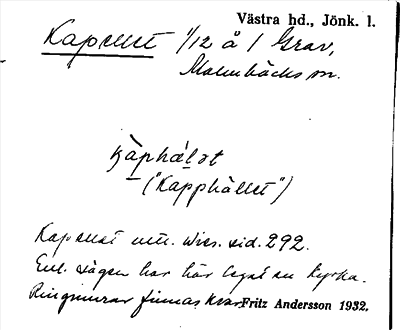 Västra hd., Jönk. l.
Kapellet 1/12 å 1 Grav,
Malmbäcks sn.
("Kapphället")
Kapellet utt. Wies. sid. 292.
Enl. sägen har här legat en kyrka.
Ringmurar finnas kvar. Fritz Andersson 1932.